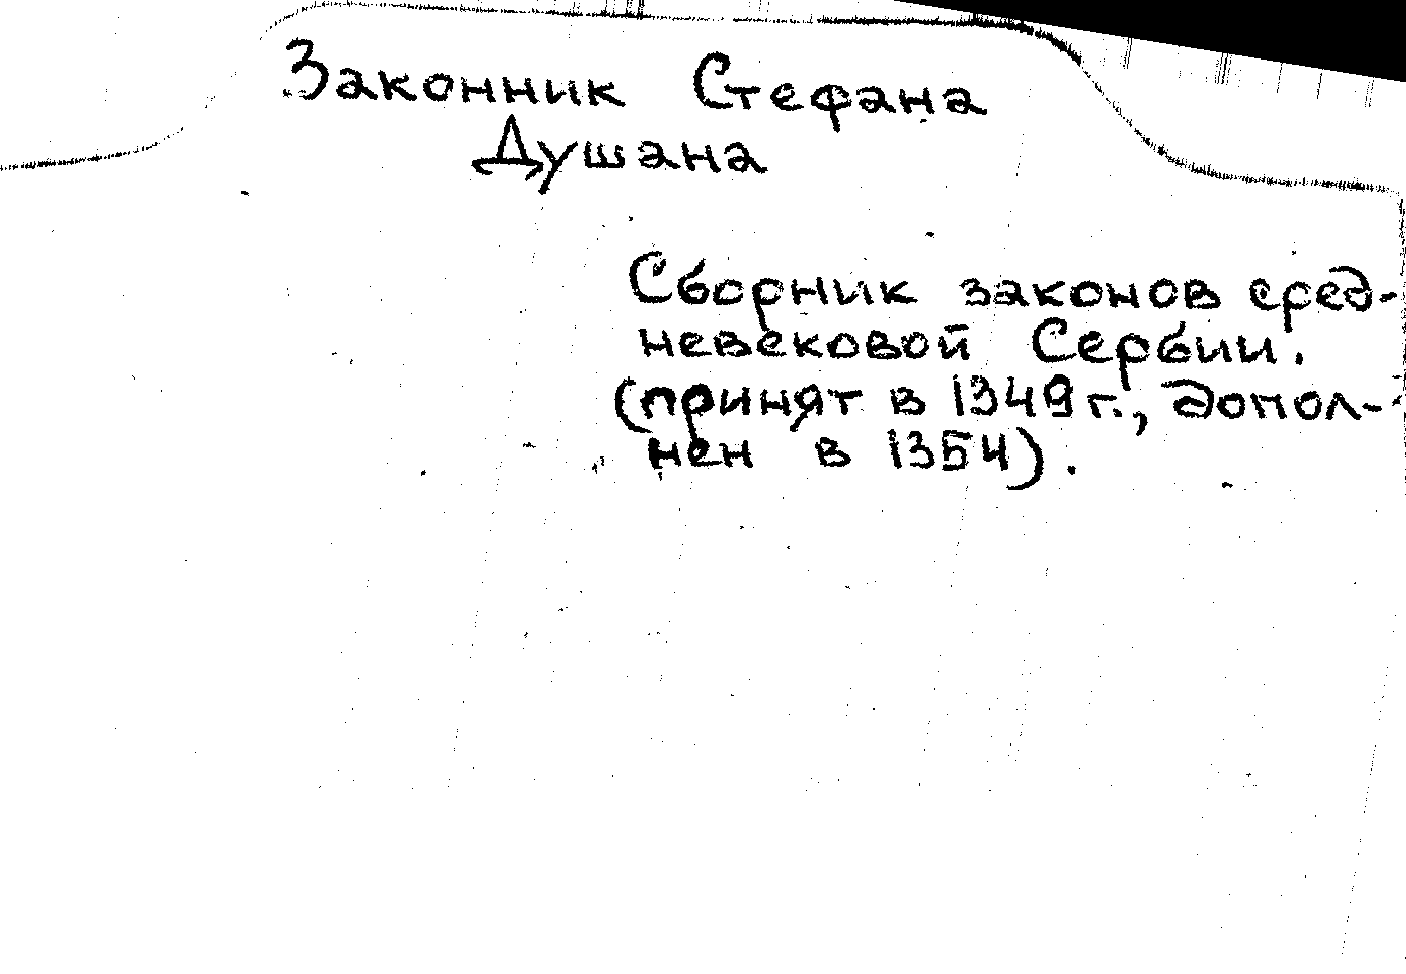 Законник Стефана
Душана
Сборник законов сред-
невековой Сербии.
(принят в 1349 г., допол-
нен в 1354).